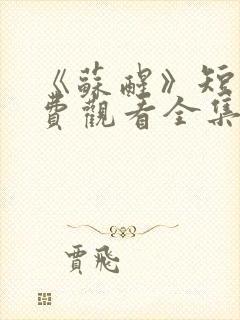 《蘇醒》短
費觀看全集
賈飛